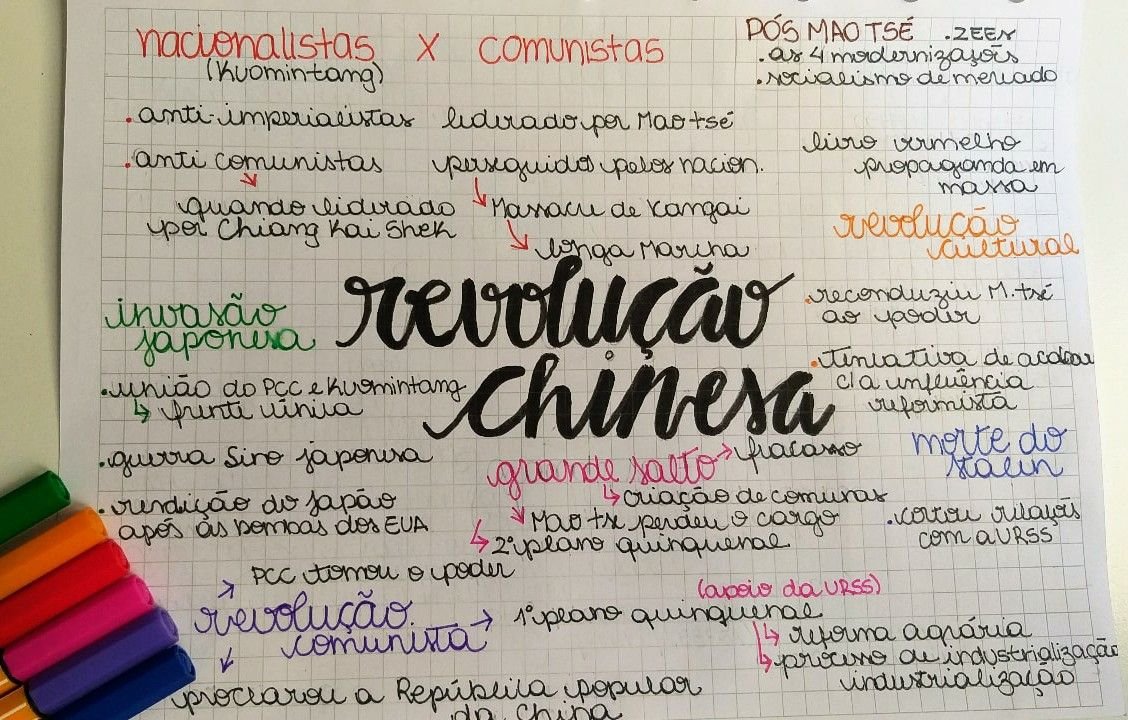 nacionalistas x comunistas
(Kuomintang)
.anti-imperialistas
.anti comunistas
quando liderado
por Chiang Kai Shek
liderado por Mao tsé
perseguidos pelos nacion.
Massacre de Xangai
longa Marcha
PÓS MAO TSÉ .ZEEs
.as 4 modernizações
.socialismo de mercado
livro vermelho
propaganda em
massa
revolução
cultural
.reconduziu M. tsé
ao poder
.tentativa de acabar
c/a influência
reformista
revolução
chinesa
invasão
japonesa
.união do PCC e Kuomintang
frente única
.guerra Sino japonesa
.rendição do Japão
após as bombas dos EUA
grande salto → fracasso
criação de comunas
Mao tse perdeu o cargo
2º plano quinquenal
morte do
Stalin
.cortou relações
com a URSS
PCC tomou o poder
revolução
comunista
1º plano quinquenal
(apoio da URSS)
reforma agrária
processo de industrialização
industrialização
proclarou a República popular
da China